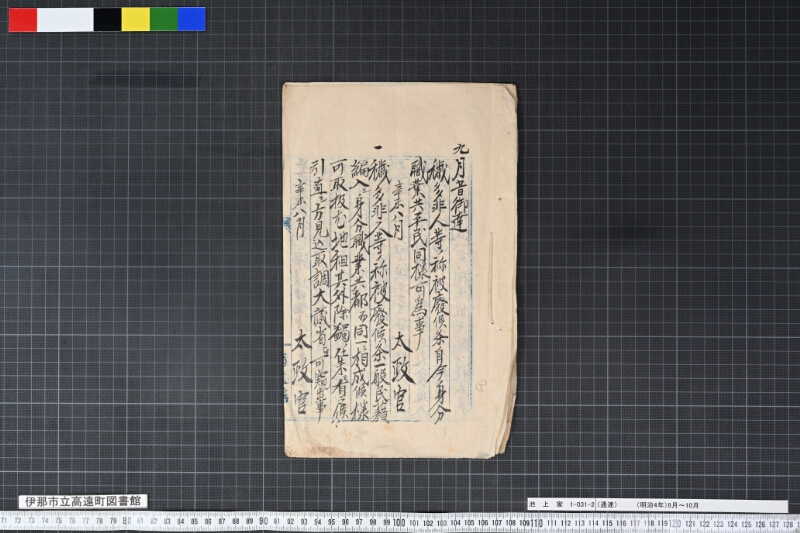 九月廿日御達
穢多非人等ノ称被廃候条自今身分
職業共平民同様可為事
辛未八月
太政官
一
穢多非人等ノ称被廃候条一般民籍
編入シ身分職業共都而同一ニ相成候様
可取扱尤地租其外除蠲ノ仕来有之候ハヽ
引直シ方見込取調大蔵省ヘ可窺出事
辛未八月
太政官
伊那市立高遠町図書館
池上家 1-031-2 (通達) (明治4年)8月~10月